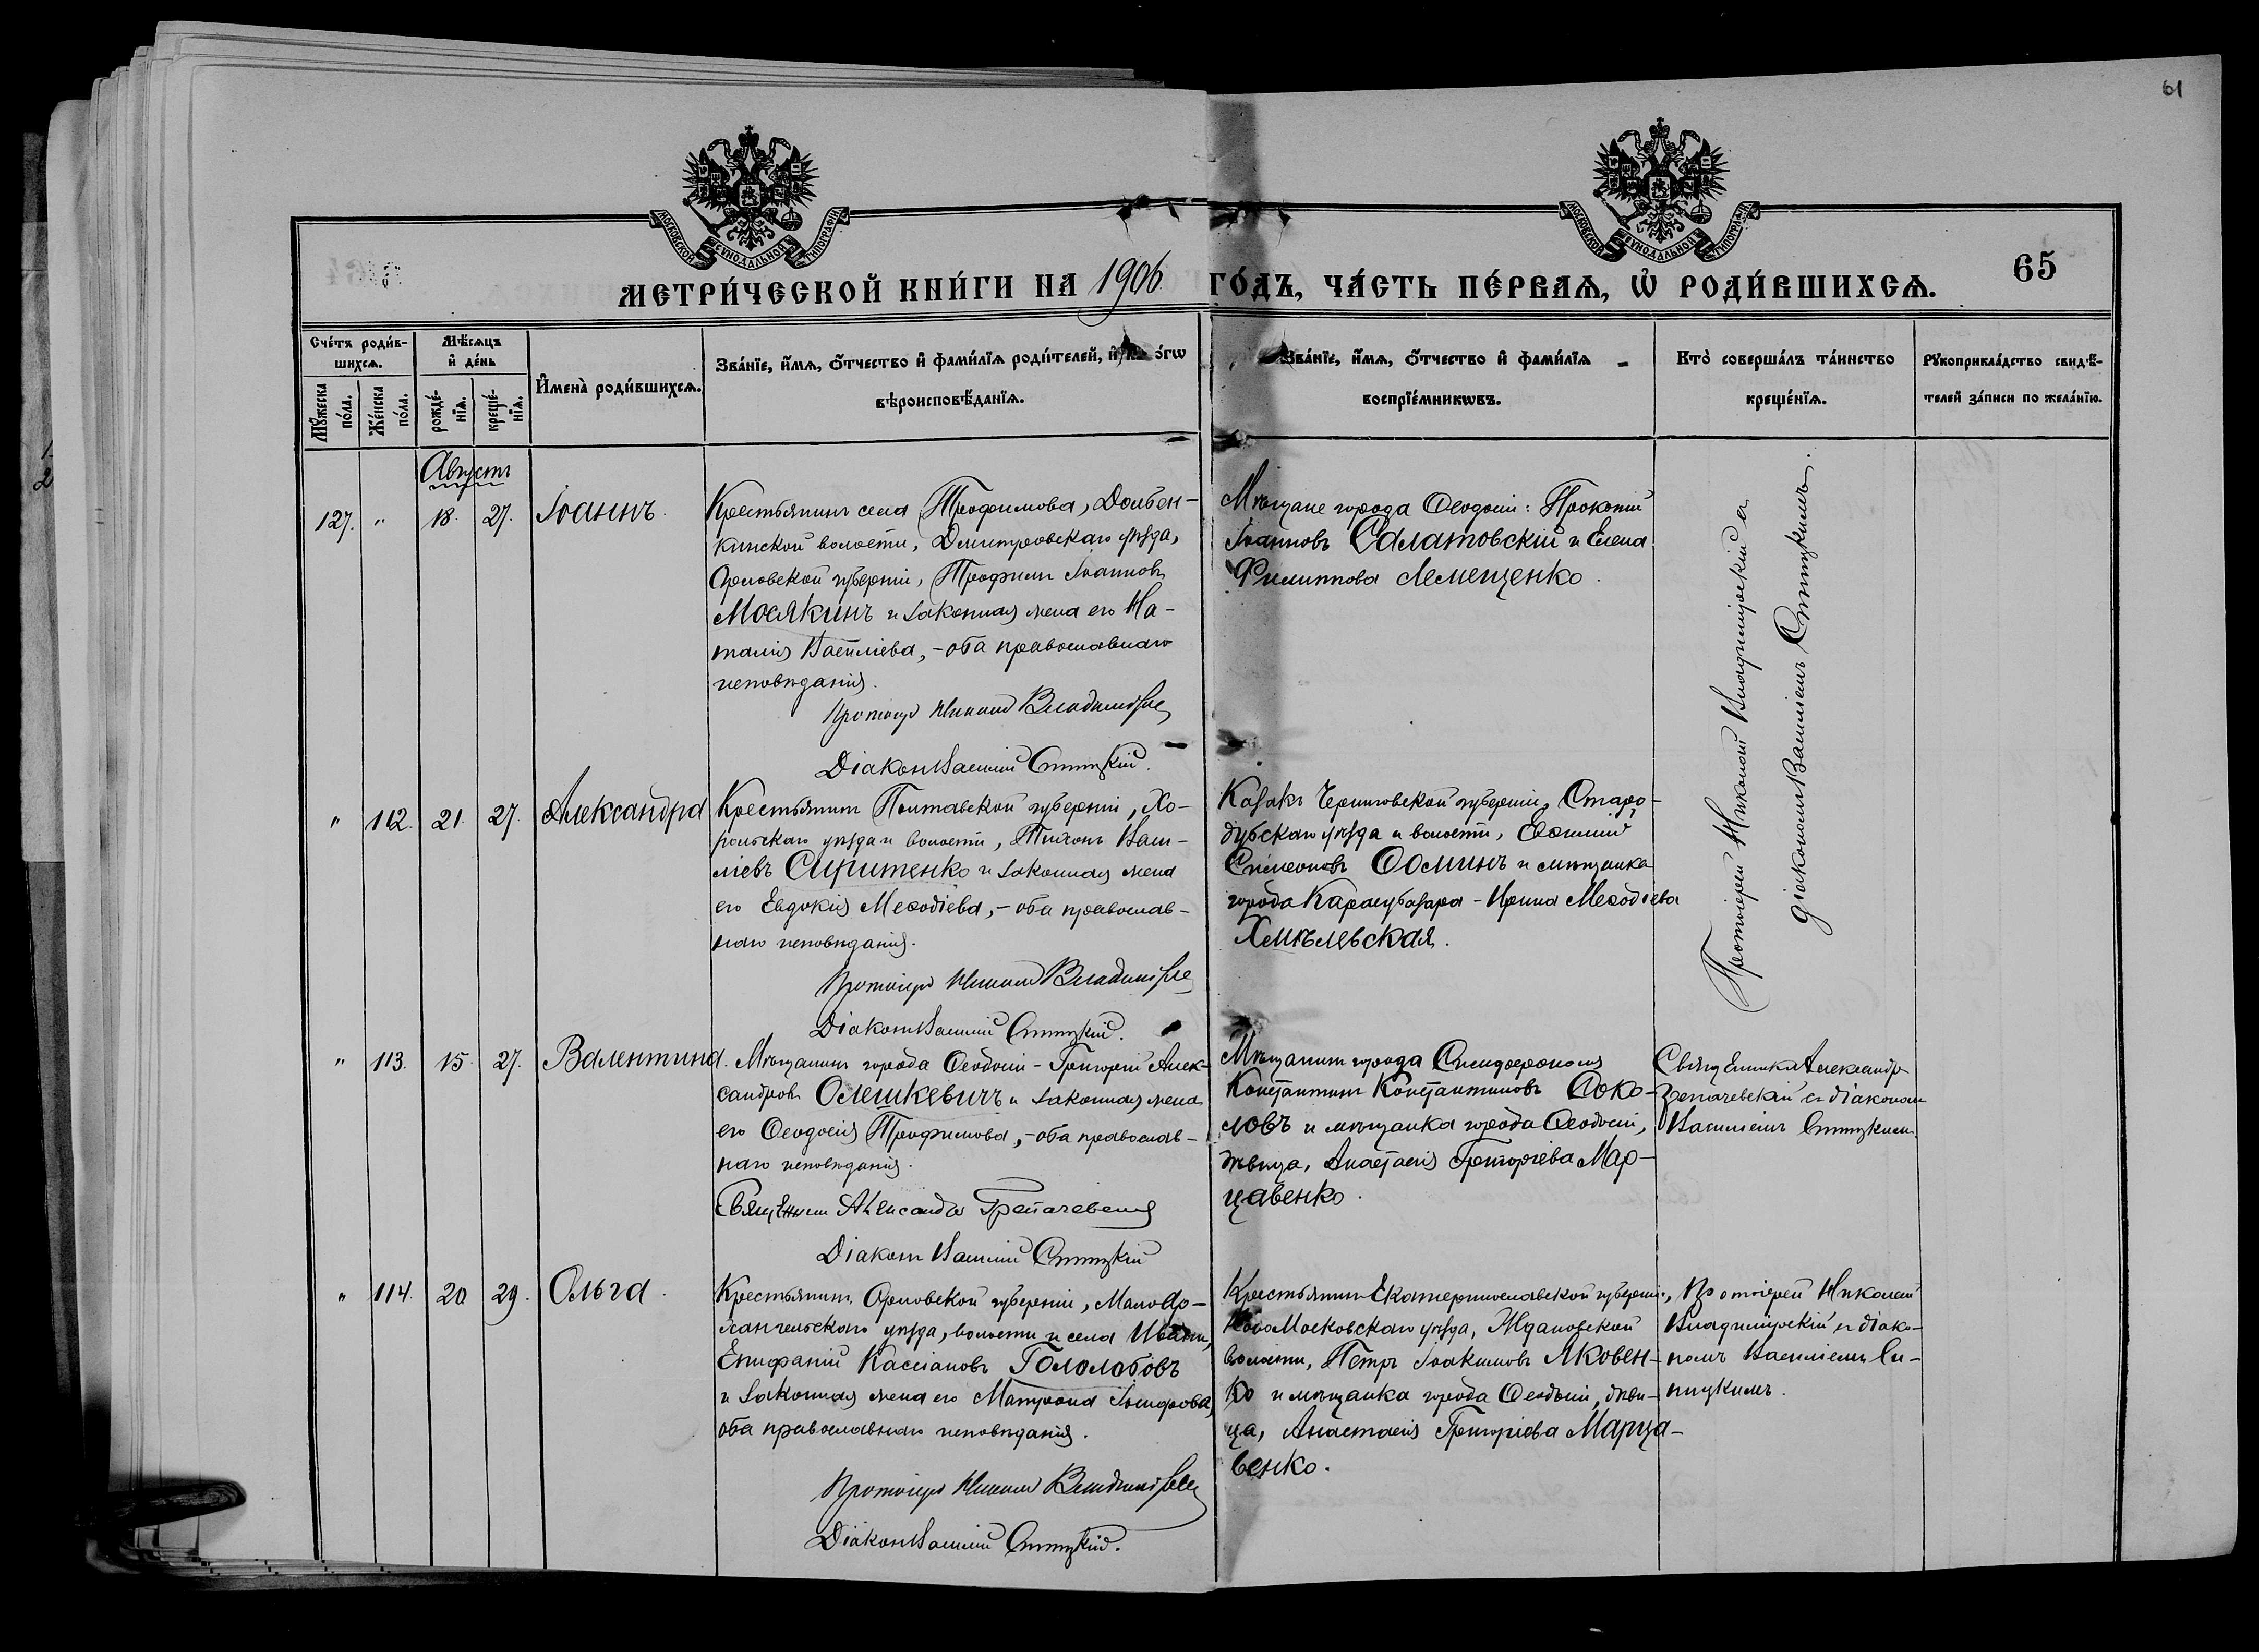 61
МОСКОВСКОЙ СѴНОДАЛЬНОЙ ТИПОГРАФІИ
МОСКОВСКОЙ СѴНОДАЛЬНОЙ ТИПОГРАФІИ
МЕТРИ́ЧЕСКОЙ КНИ́ГИ НА 1906 ГО́ДЪ, ЧА́СТЬ ПЕ́РВАѦ, Ѡ҆ РОДИ́ВШИХСѦ.
65
Сче́тъ роди́в-
шихсѧ.
Мꙋ́жеска
по́ла.
Же́нска
по́ла.
Мѣ́сѧцъ
и҆ де́нь
рожде́-
нїѧ.
креще́-
нїѧ.
И҆мена̀ роди́вшихсѧ.
Зва́нїе, и҆́мѧ, ѻ҆́тчество и҆ фами́лїѧ роди́телей, и҆
вѣроисповѣ́данїѧ.
Зва́нїе, и҆́мѧ, ѻ҆́тчество и҆ фами́лїѧ
воспрїе́мникѡвъ.
Кто̀ соверша́лъ та́инство
креще́нїѧ.
Рꙋкоприкла́дство свидѣ́-
телей за́писи по жела́нїю.
Августъ
127. " 18. 27. Іоаннъ.
Крестьянинъ села Трофимова, Долбен-
кинской волости, Дмитровскаго уѣзда,
Орловской губерніи, Трофимъ Іоанновъ
Мосякинъ и законная жена его На-
талія Василіева, - оба православнаго
исповѣданія.
Протоіер Николай Владимірскій
Діаконъ Василий Ситницкій.
Мѣщане города Ѳеодосіи: Прокопій
Іоанновъ Салатовскій и Елена
Филиппова Лемещенко.
Протоіерей Николай Владимірскій съ
діакономъ Василіемъ Ситницкимъ.
" 112. 21. 27. Александра
Крестьянинъ Полтавской губерніи, Хо-
рольскаго уѣзда и волости, Тихонъ Васи-
ліевъ Сиритенко и законная жена
его Евдокія Меѳодіева, - оба православ-
наго исповѣданія.
Протоіер Николай Владимірскій
Діаконъ Василий Ситницкій.
Казакъ Черниговской губерніи, Старо-
дубскаго уѣзда и волости, Евѳимій
Симеоновъ Ѳоминъ и мѣщанка
города Карасубазара - Ирина Меѳодіева
Хмѣлевская.
" 113. 15. 27. Валентина.
Мѣщанинъ города Ѳеодосіи - Григорій Алек-
сандровъ Олешкевичъ и законная жена
его Ѳеодосія Трофимова, - оба православ-
наго исповѣданія.
Священникъ Александръ
Діаконъ Василий Ситницкій
Мѣщанинъ города Симферополя
Константинъ Константиновъ Соко-
ловъ и мѣщанка города Ѳеодосіи,
дѣвица, Анастасія Григоріева Мар-
цавенко.
Священникъ Александръ
съ діакономъ
Василіемъ Ситницкимъ
" 114. 20 29. Ольга.
Крестьянинъ Орловской губерніи, МалоАр-
хангельскаго уѣзда, волости и села Ивани,
Епифаній Кассіановъ Гололобовъ
и законная жена его Матрона Іосифова,
оба православнаго исповѣданія.
Протоіер Николай Владимірскій
Діаконъ Василий Ситницкій.
Крестьянинъ Екатеринославской губерніи,
НовоМосковскаго уѣзда, Ждановской
волости, Петръ Іоакимовъ Яковен-
ко и мѣщанка города Ѳеодосіи, дѣви-
ца, Анастасія Григоріева Марца-
венко.
Протоіерей Николай
Владимірскій съ діако-
номъ Василіемъ Си-
тницкимъ.